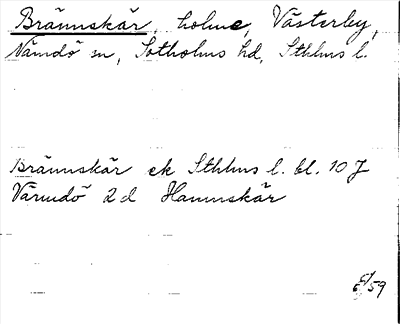 Brännskär, holme, Västerby,
Nämdö sn, Sotholms hd, Sthlms l.
Brännskär ek Sthlms l. bl. 10 J
Värmdö 2d Hamnskär